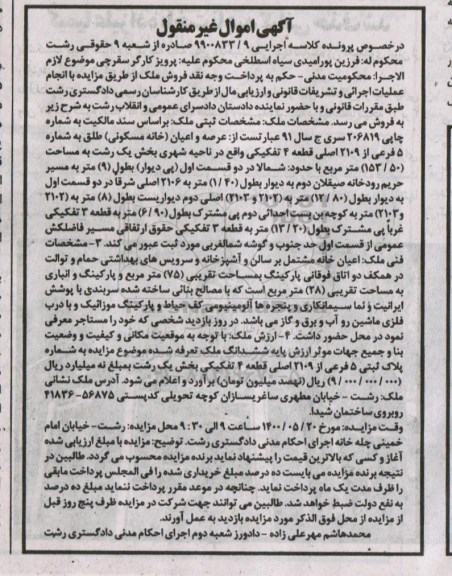 آگهی اموال غیر منقول
درخصوص پرونده کلاسه اجرایی ۹ / ۹۹۰۰۸۳۳ صادره از شعبه ۹ حقوقی رشت
محکوم له: فرزین پورامیدی سیاه اسطلخی محکوم علیه: پرویز کارگر سقرچی موضوع لازم
الاجرا: محکومیت مدنی - حکم به پرداخت وجه نقد فروش ملک از طریق مزایده با انجام
عملیات اجرائی و تشریفات قانونی و ارزیابی مال از طریق کارشناسان رسمی دادگستری رشت
طبق مقررات قانونی و با حضور نماینده دادستان دادسرای عمومی و انقلاب رشت به شرح زیر
به فروش می رسد. مشخصات ملک: مشخصات ثبتی ملک: براساس سند مالکیت به شماره
چاپی ۲۰۶۸۱۹ سری ج سال ۹۱ عبارتست از: عرصه و اعیان (خانه مسکونی) طلق به شماره
۵ فرعی از ۲۱۰۹ اصلی قطعه ۴ تفکیکی واقع در ناحیه شهری بخش یک رشت به مساحت
(۵۰ / ۱۵۳) متر مربع با حدود: شمالا در دو قسمت اول (پی دیوار) بطول (۹) متر به مسیر
حریم رودخانه صیقلان دوم به دیوار بطول (۴۰ / ۱) متر به ۲۱۰۶ اصلی شرقا در دو قسمت اول
به دیوار بطول (۸۰ / ۱۲) متر به (۲۱۰۲ و ۲۱۰۳) اصلی دوم دیواریست بطول (۸) متر به (۲۱۰۲
و ۲۱۰۳) متر به کوچه بن بست احداثی دوم پی مشترک بطول (۹۰ / ۶) متر به قطعه ۳ تفکیکی
غرباً پی مشترک بطول (۲۰ / ۱۳) متر به قطعه ۳ تفکیکی حقوق ارتفاقی مسیر فاضلکش
عمومی از قسمت اول حد جنوب و گوشه شمالغربی مورد ثبت عبور می کند. ۳- مشخصات
فنی ملک: اعیان خانه مشتمل بر سالن و آشپزخانه و سرویس های بهداشتی حمام و توالت
در همکف دو اتاق فوقانی پارکینگ بمساحت تقریبی (۷۵) متر مربع و پارکینگ و انباری
به مساحت تقریبی (۲۸) متر مربع است که با مصالح بنائی ساخته شده سربندی با پوشش
ایرانیت و نما سیمانکاری و پنجره ها آلومینیومی کف حیاط و پارکینگ موزائیک و با درب
فلزی ماشین رو آب و برق و گاز می باشد. در روز بازدید شخصی که خود را مستاجر معرفی
نمود در محل حضور داشت. ۴- ارزش ملک: با توجه به موقعیت مکانی و کیفیت و وضعیت
بنا و جمیع جهات موثر ارزش پایه ششدانگ ملک تعرفه شده موضوع مزایده به شماره
پلاک ثبتی ۵ فرعی از ۲۱۰۹ اصلی قطعه ۴ تفکیکی بخش یک رشت بمبلغ نه میلیارد ریال
(۰۰۰ / ۰۰۰ / ۰۰۰ / ۹) ریال (نهصد میلیون تومان) برآورد و اعلام می شود. آدرس ملک نشانی
ملک: رشت - خیابان مطهری ساغریسازان کوچه تحویلی کدپستی ۵۶۸۷۵-۴۱۸۳۶
روبروی ساختمان شیدا.
وقت مزایده: مورخ ۲۰ / ۰۵ / ۱۴۰۰ ساعت ۹ الی ۹:۳۰ محل مزایده: رشت- خیابان امام
خمینی چله خانه اجرای احکام مدنی دادگستری رشت. توضیح: مزایده با مبلغ ارزیابی شده
آغاز و کسی که بالاترین قیمت را پیشنهاد نماید برنده مزایده محسوب می گردد. طالبین در
نتیجه برنده مزایده می بایست ده درصد مبلغ خریداری شده را فی المجلس پرداخت مابقی
را ظرف مدت یک ماه پرداخت نماید. چنانچه در موعد مقرر پرداخت ننماید مبلغ ده درصد
به نفع دولت ضبط خواهد شد. طالبین می توانند جهت شرکت در مزایده ظرف پنج روز قبل
از مزایده از محل فوق الذکر مورد مزایده بازدید به عمل آورند.
محمدهاشم مهرعلی زاده - دادورز شعبه دوم اجرای احکام مدنی دادگستری رشت